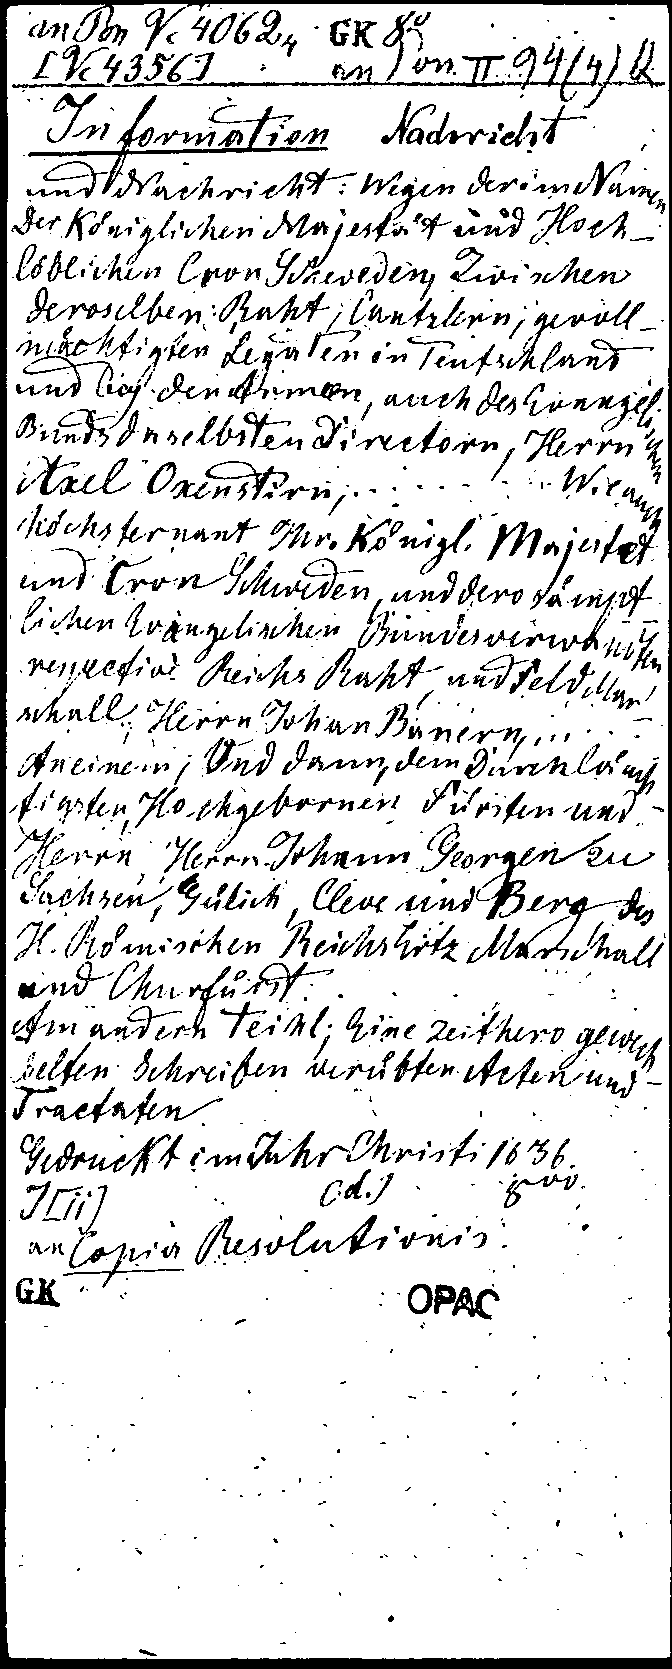 an Bn Vc 4062,4 GK 8°
[Vc 4356] an Pon II 94(4) Q
Information Nachricht
und Nachricht: Wegen der im Namen
Der Königlichen Majestät und Hoch-
löblichen Cron Schweden, Zwischen
deroselben: Raht, Cantzlern, gevoll-
mächtigten Legaten in Teutschland
und bey den Armeen, auch des Evangelischen
Bunds daselbsten Directorn, Herrn
Axel Oxenstirn, . . . . . . . Wie auch
höchsternant Ihr. Königl. Majestet
und Cron Schweden, und dero sämpt-
lichen Evangelischen Bundesverwandten
respective Reichs Raht, und Feld Mar-
schall, Herrn Johan Banern, . . . . .
An einem; Und dann, dem Durchläuch-
tigsten, Hochgebornen Fürsten und
Herrn, Herrn Johann Georgen zu
Sachsen, Gülich, Cleve und Berg des
H. Römischen Reichs Ertz Marschall
und Churfürst.
Am andern Teihl; Eine zeithero gewech-
selten Schreiben verübten Acten und
Tractaten.
Gedruckt im Jahr Christi 1636.
J[ii] (d.)
an Copia Resolutionis.
GK OPAC